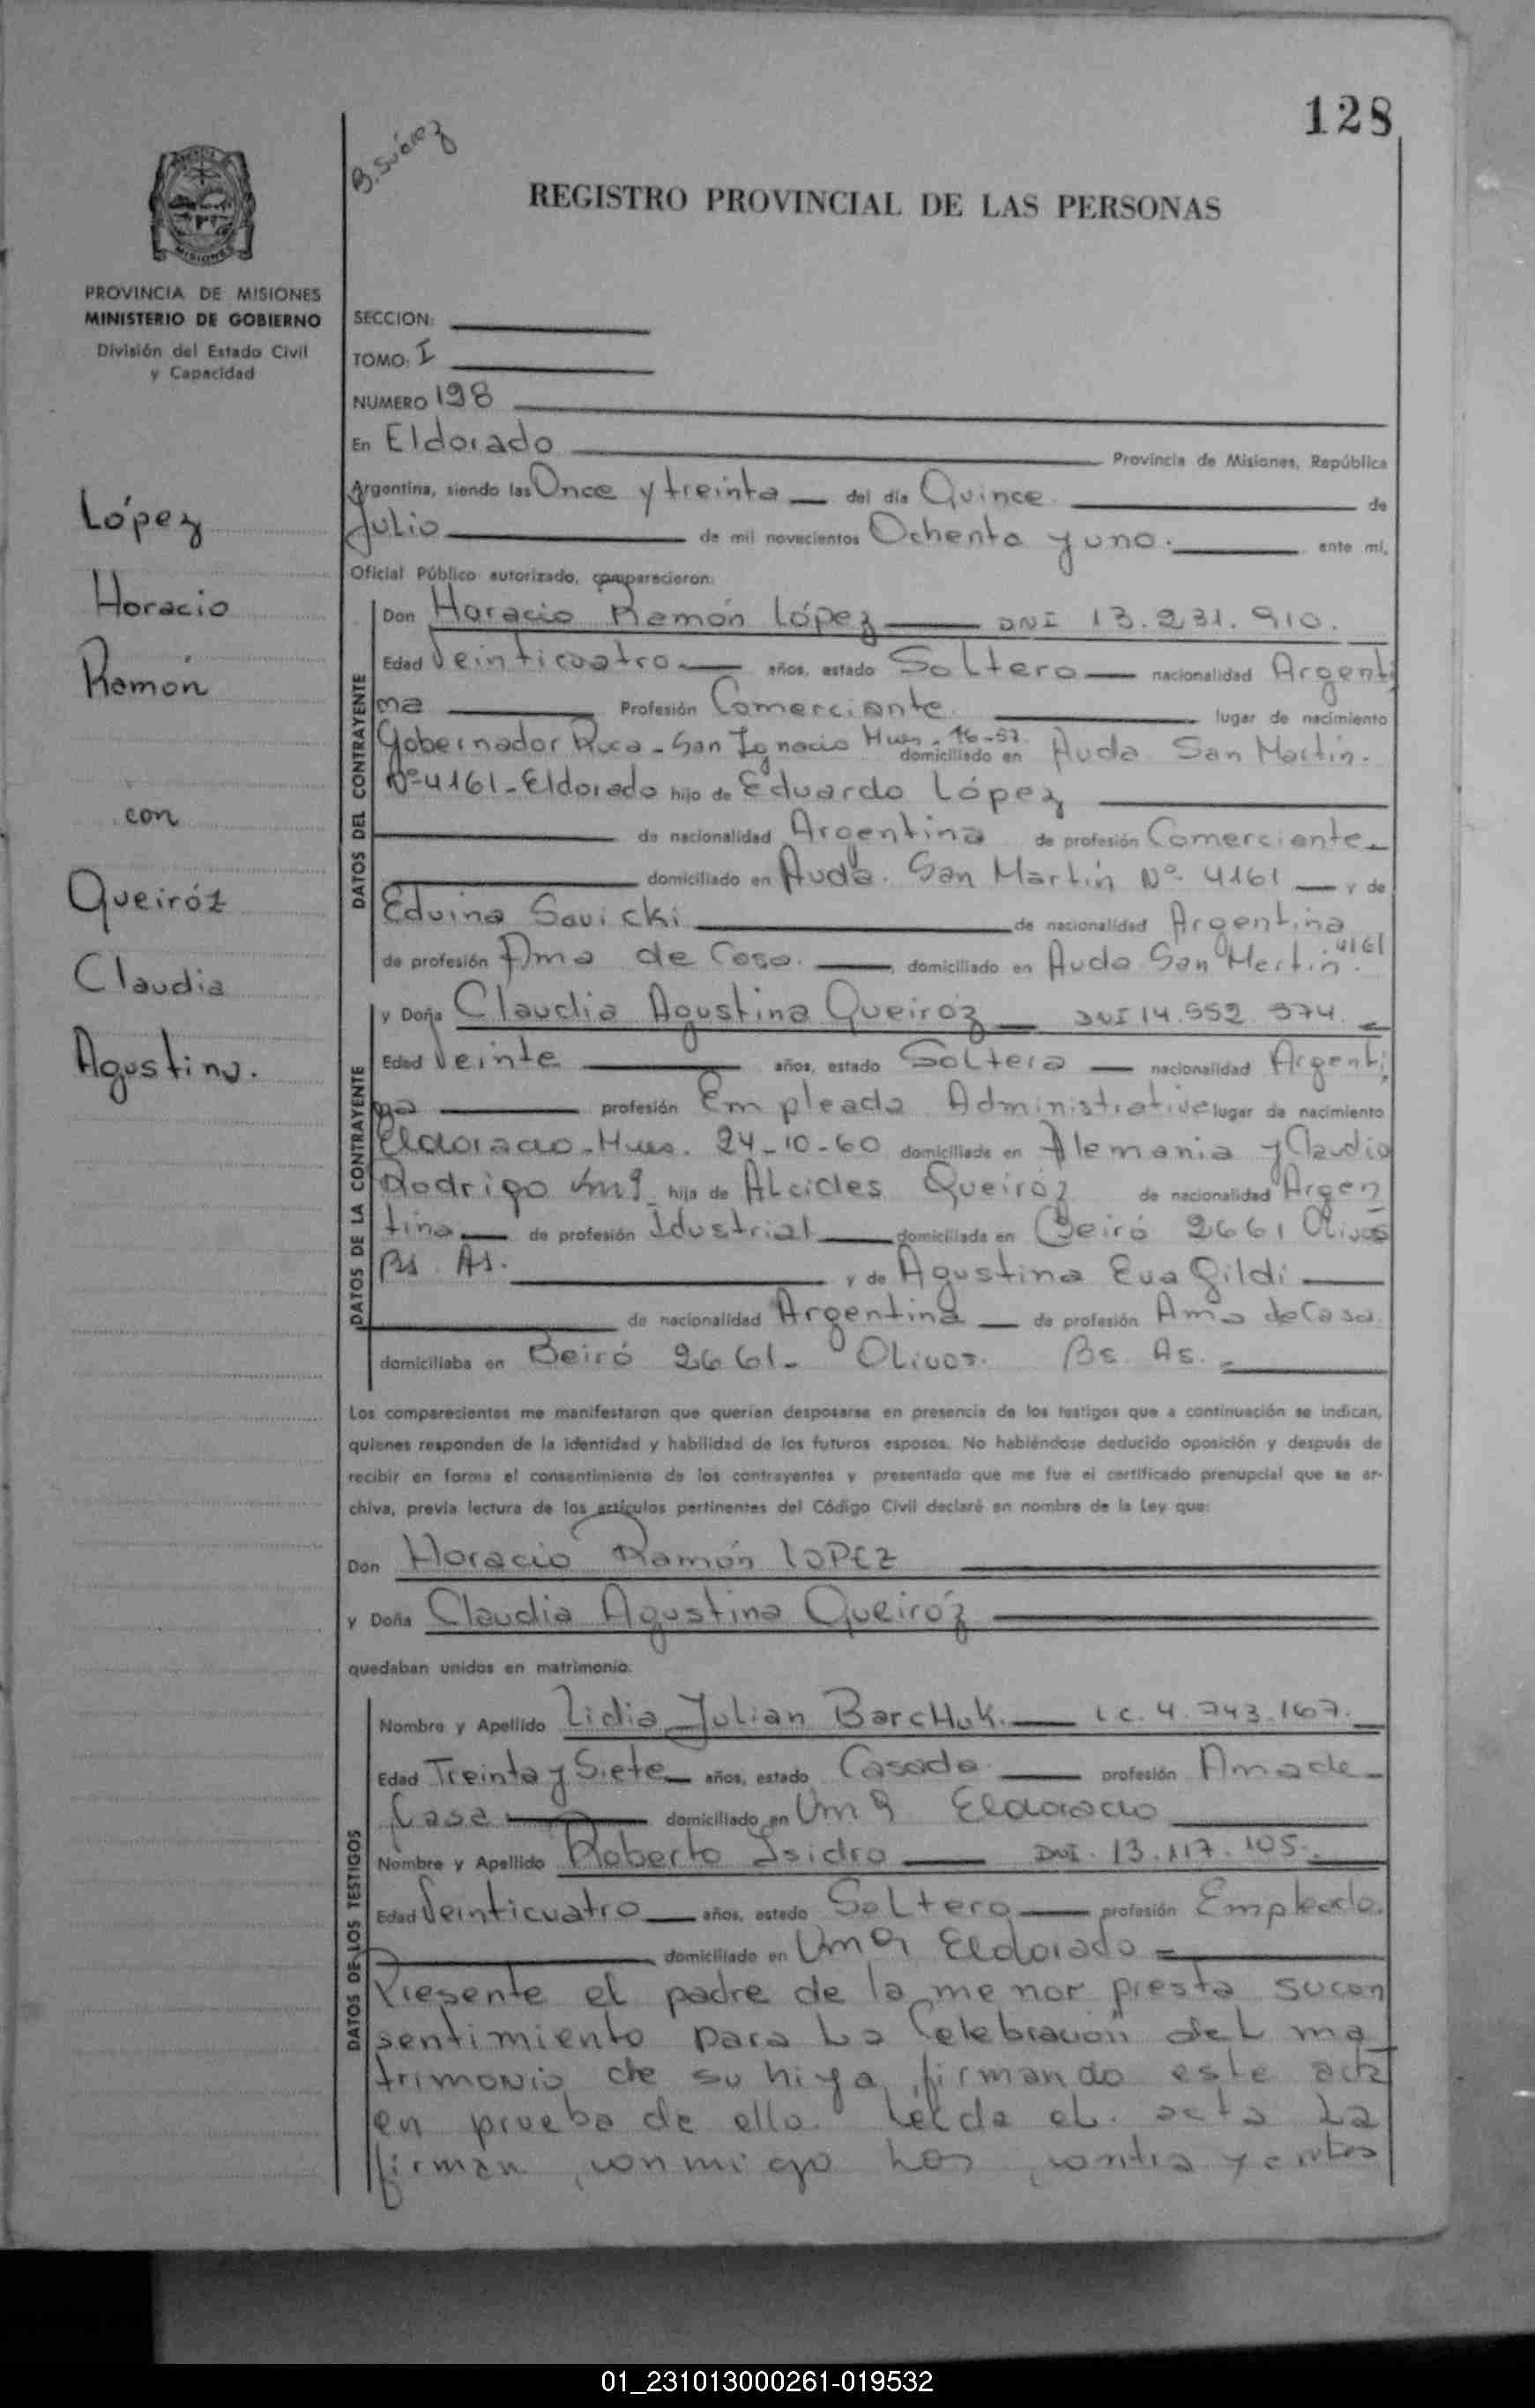 128
B. Suárez
REGISTRO PROVINCIAL DE LAS PERSONAS
PROVINCIA DE MISIONES
MINISTERIO DE GOBIERNO
División del Estado Civil
y Capacidad
SECCION:
TOMO: I
NUMERO 198
En Eldorado Provincia de Misiones, República
Argentina, siendo las Once y treinta del día Quince de
Julio de mil novecientos Ochenta y uno. ante mí,
Oficial Público autorizado, comparecieron:
López
Horacio
Ramón
con
Queiróz
Claudia
Agustina.
DATOS DEL CONTRAYENTE
Don Horacio Ramón López DNI 13.231.910.
Edad Veinticuatro años, estado Soltero nacionalidad Argenti
na Profesión Comerciante lugar de nacimiento
Gobernador Roca - San Ignacio domiciliado en Avda San Martín.
Nº 4161 - Eldorado hijo de Eduardo López
de nacionalidad Argentina de profesión Comerciante
domiciliado en Avda. San Martín Nº 4161 y de
Edvina Savicki de nacionalidad Argentina
de profesión Ama de Casa. domiciliado en Avda San Martin. 4161
DATOS DE LA CONTRAYENTE
y Doña Claudia Agustina Queiróz DNI 14.552.574.
Edad Veinte años, estado Soltera nacionalidad Argenti
na profesión Empleada Administrativa lugar de nacimiento
Eldorado - 24-10-60 domiciliada en Alemania y Claudio
Rodrigo hija de Alcides Queiróz de nacionalidad Argen
tina de profesión Idustrial domiciliada en Beiró 2661 Olivos
Bs. As. y de Agustina Eva Gildi
de nacionalidad Argentina de profesión Ama de Casa.
domiciliaba en Beiró 2661 - Olivos. Bs. As.
Los comparecientes me manifestaron que querían desposarse en presencia de los testigos que a continuación se indican,
quienes responden de la identidad y habilidad de los futuros esposos. No habiéndose deducido oposición y después de
recibir en forma el consentimiento de los contrayentes y presentado que me fue el certificado prenupcial que se ar-
chiva, previa lectura de los artículos pertinentes del Código Civil declaré en nombre de la Ley que:
Don Horacio Ramón LOPEZ
y Doña Claudia Agustina Queiróz
quedaban unidos en matrimonio.
DATOS DE LOS TESTIGOS
Nombre y Apellido Lidia Julian Barchuk. L.C. 4.743.167.
Edad Treinta y Siete años, estado Casada profesión Ama de
Casa domiciliado en Km 9 Eldorado
Nombre y Apellido Roberto Isidro DNI. 13.117.105.
Edad Veinticuatro años, estado Soltero profesión Empleado.
domiciliado en Km 9 Eldorado
Presente el padre de la menor presta su con
sentimiento para la Celebración del ma
trimonio de su hija, firmando este acta
en prueba de ello. Leída el. acta la
firman conmigo los contrayentes
01_231013000261-019532